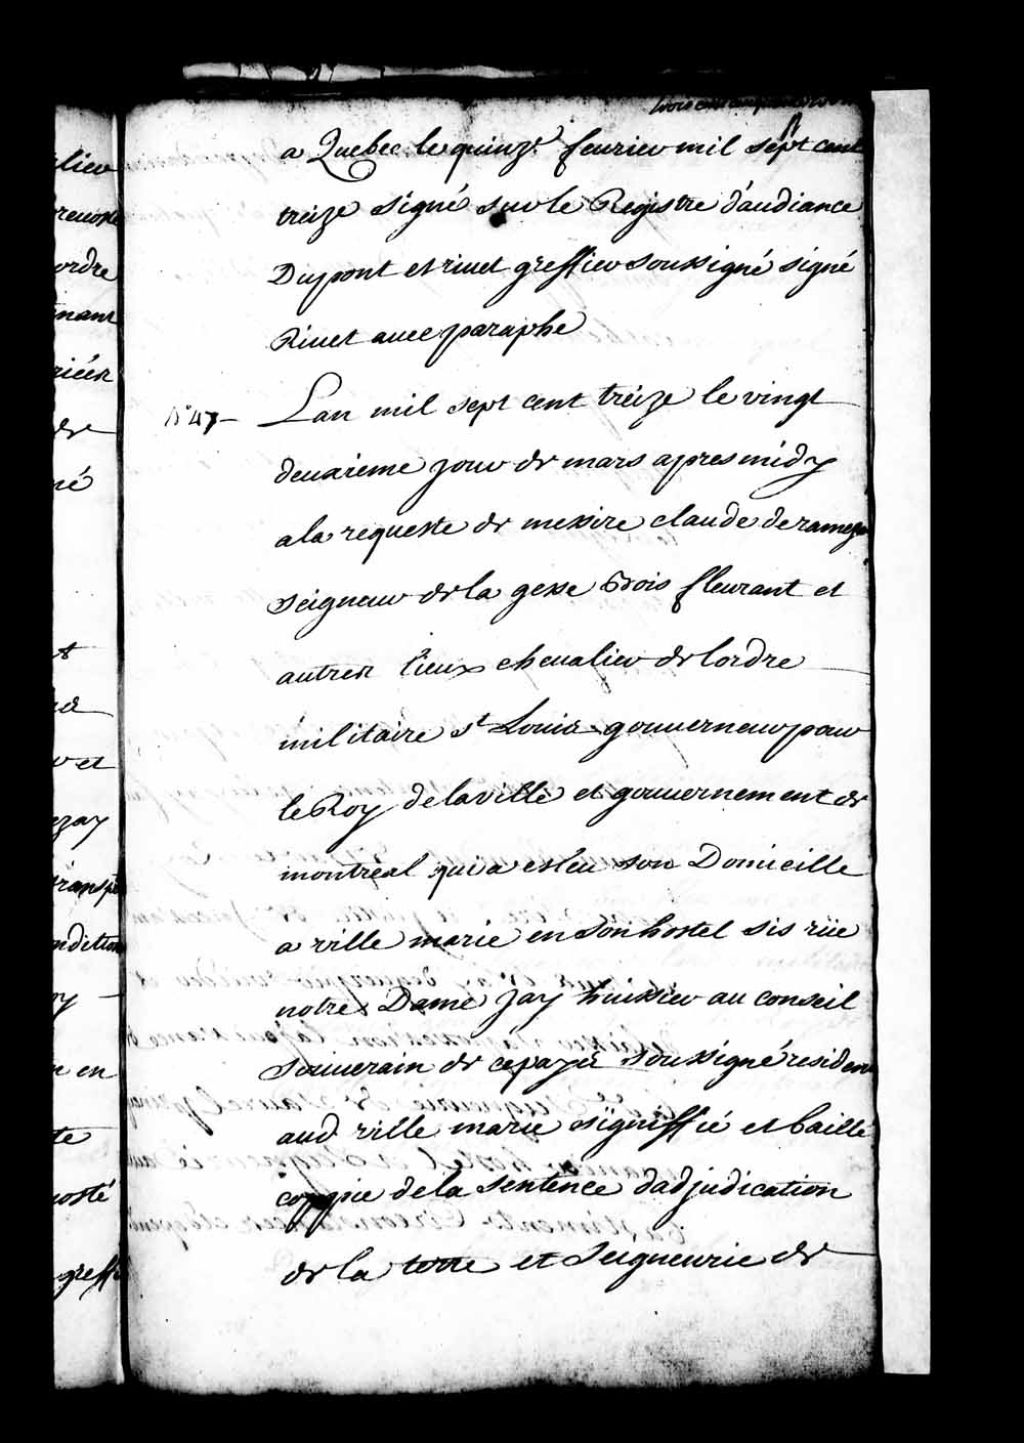 trois cent cinquante
a Quebec le quinze. feurier mil sept cent
treize signé sur le Registre d'audiance
Dupont et riuet greffier soussigné signé
Riuet auec paraphe
N° 47 – Lan mil sept cent treize le vingt
deuxieme jour de mars apres midy
a la requeste de messire claude de ramezay
seigneur de la gesse Bois fleurant et
autres lieux cheualier de lordre
militaire st Louis gouuerneur pour
le Roy de la ville et gouuernement de
montreal qui a esleu son Domicille
a ville marie en son hostel sis rüe
notre Dame Jay huissier au conseil
souuerain de ce païs soussigné resident
aud ville marie signiffié et baillé
coppie de la sentence dadjudication
de la terre et Seigneurie de
lieu
preuosté
ordre
nant
de
né
et
zay
ndition
en
te
uosté
greffi